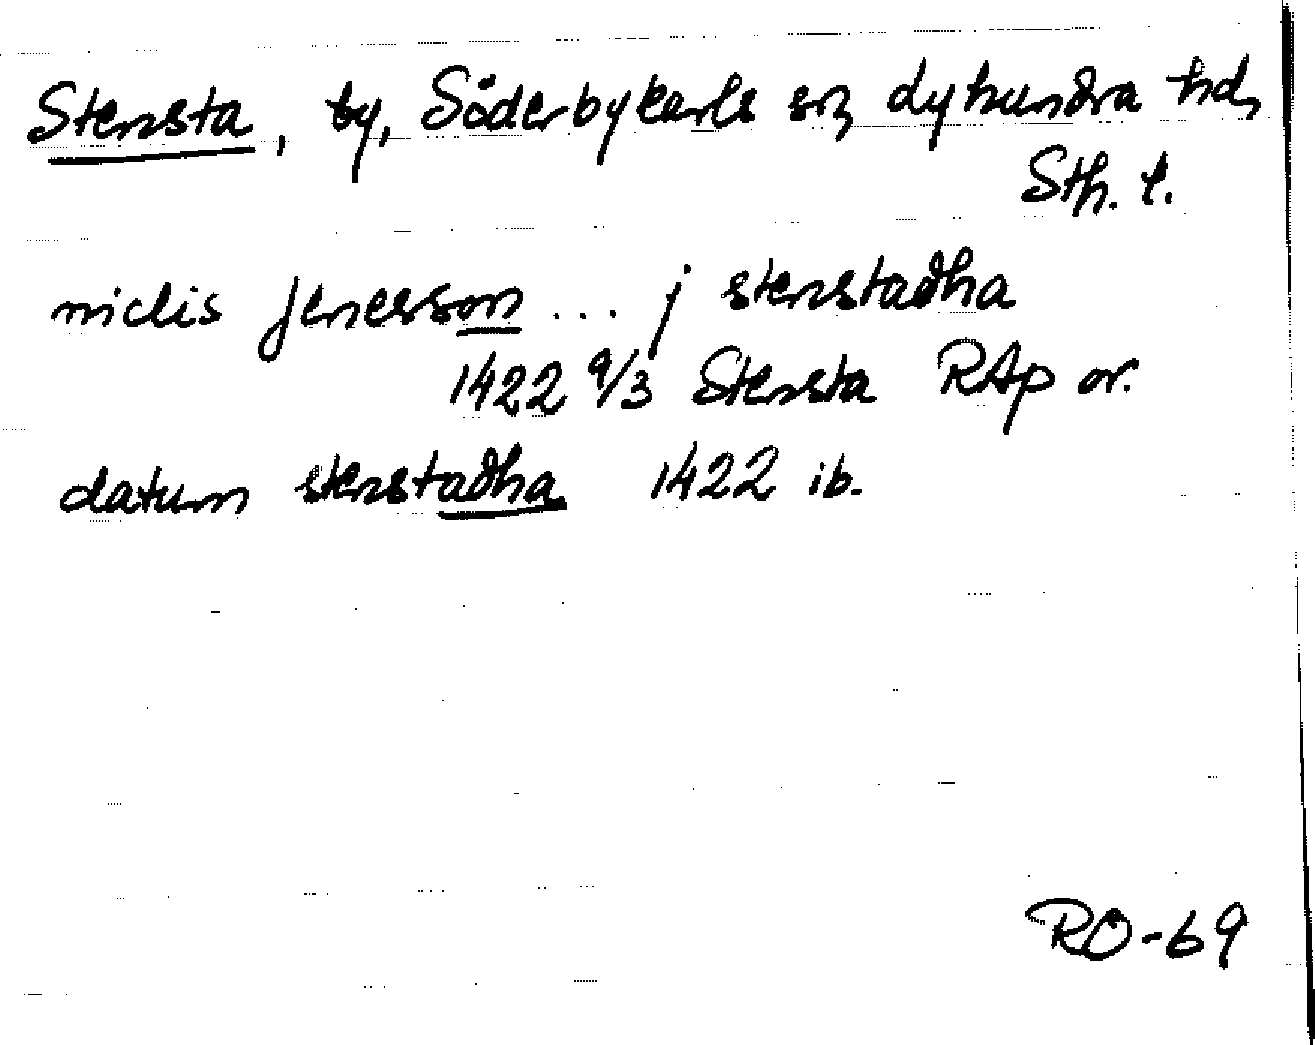 Stensta, by, Söderbykarls sn, Lyhundra hd,
Sth. l.
niclis jenesson ... j stenstadha
1422 9/3 Stensta RAp or.
datum stenstadha 1422 ib.
RO-69